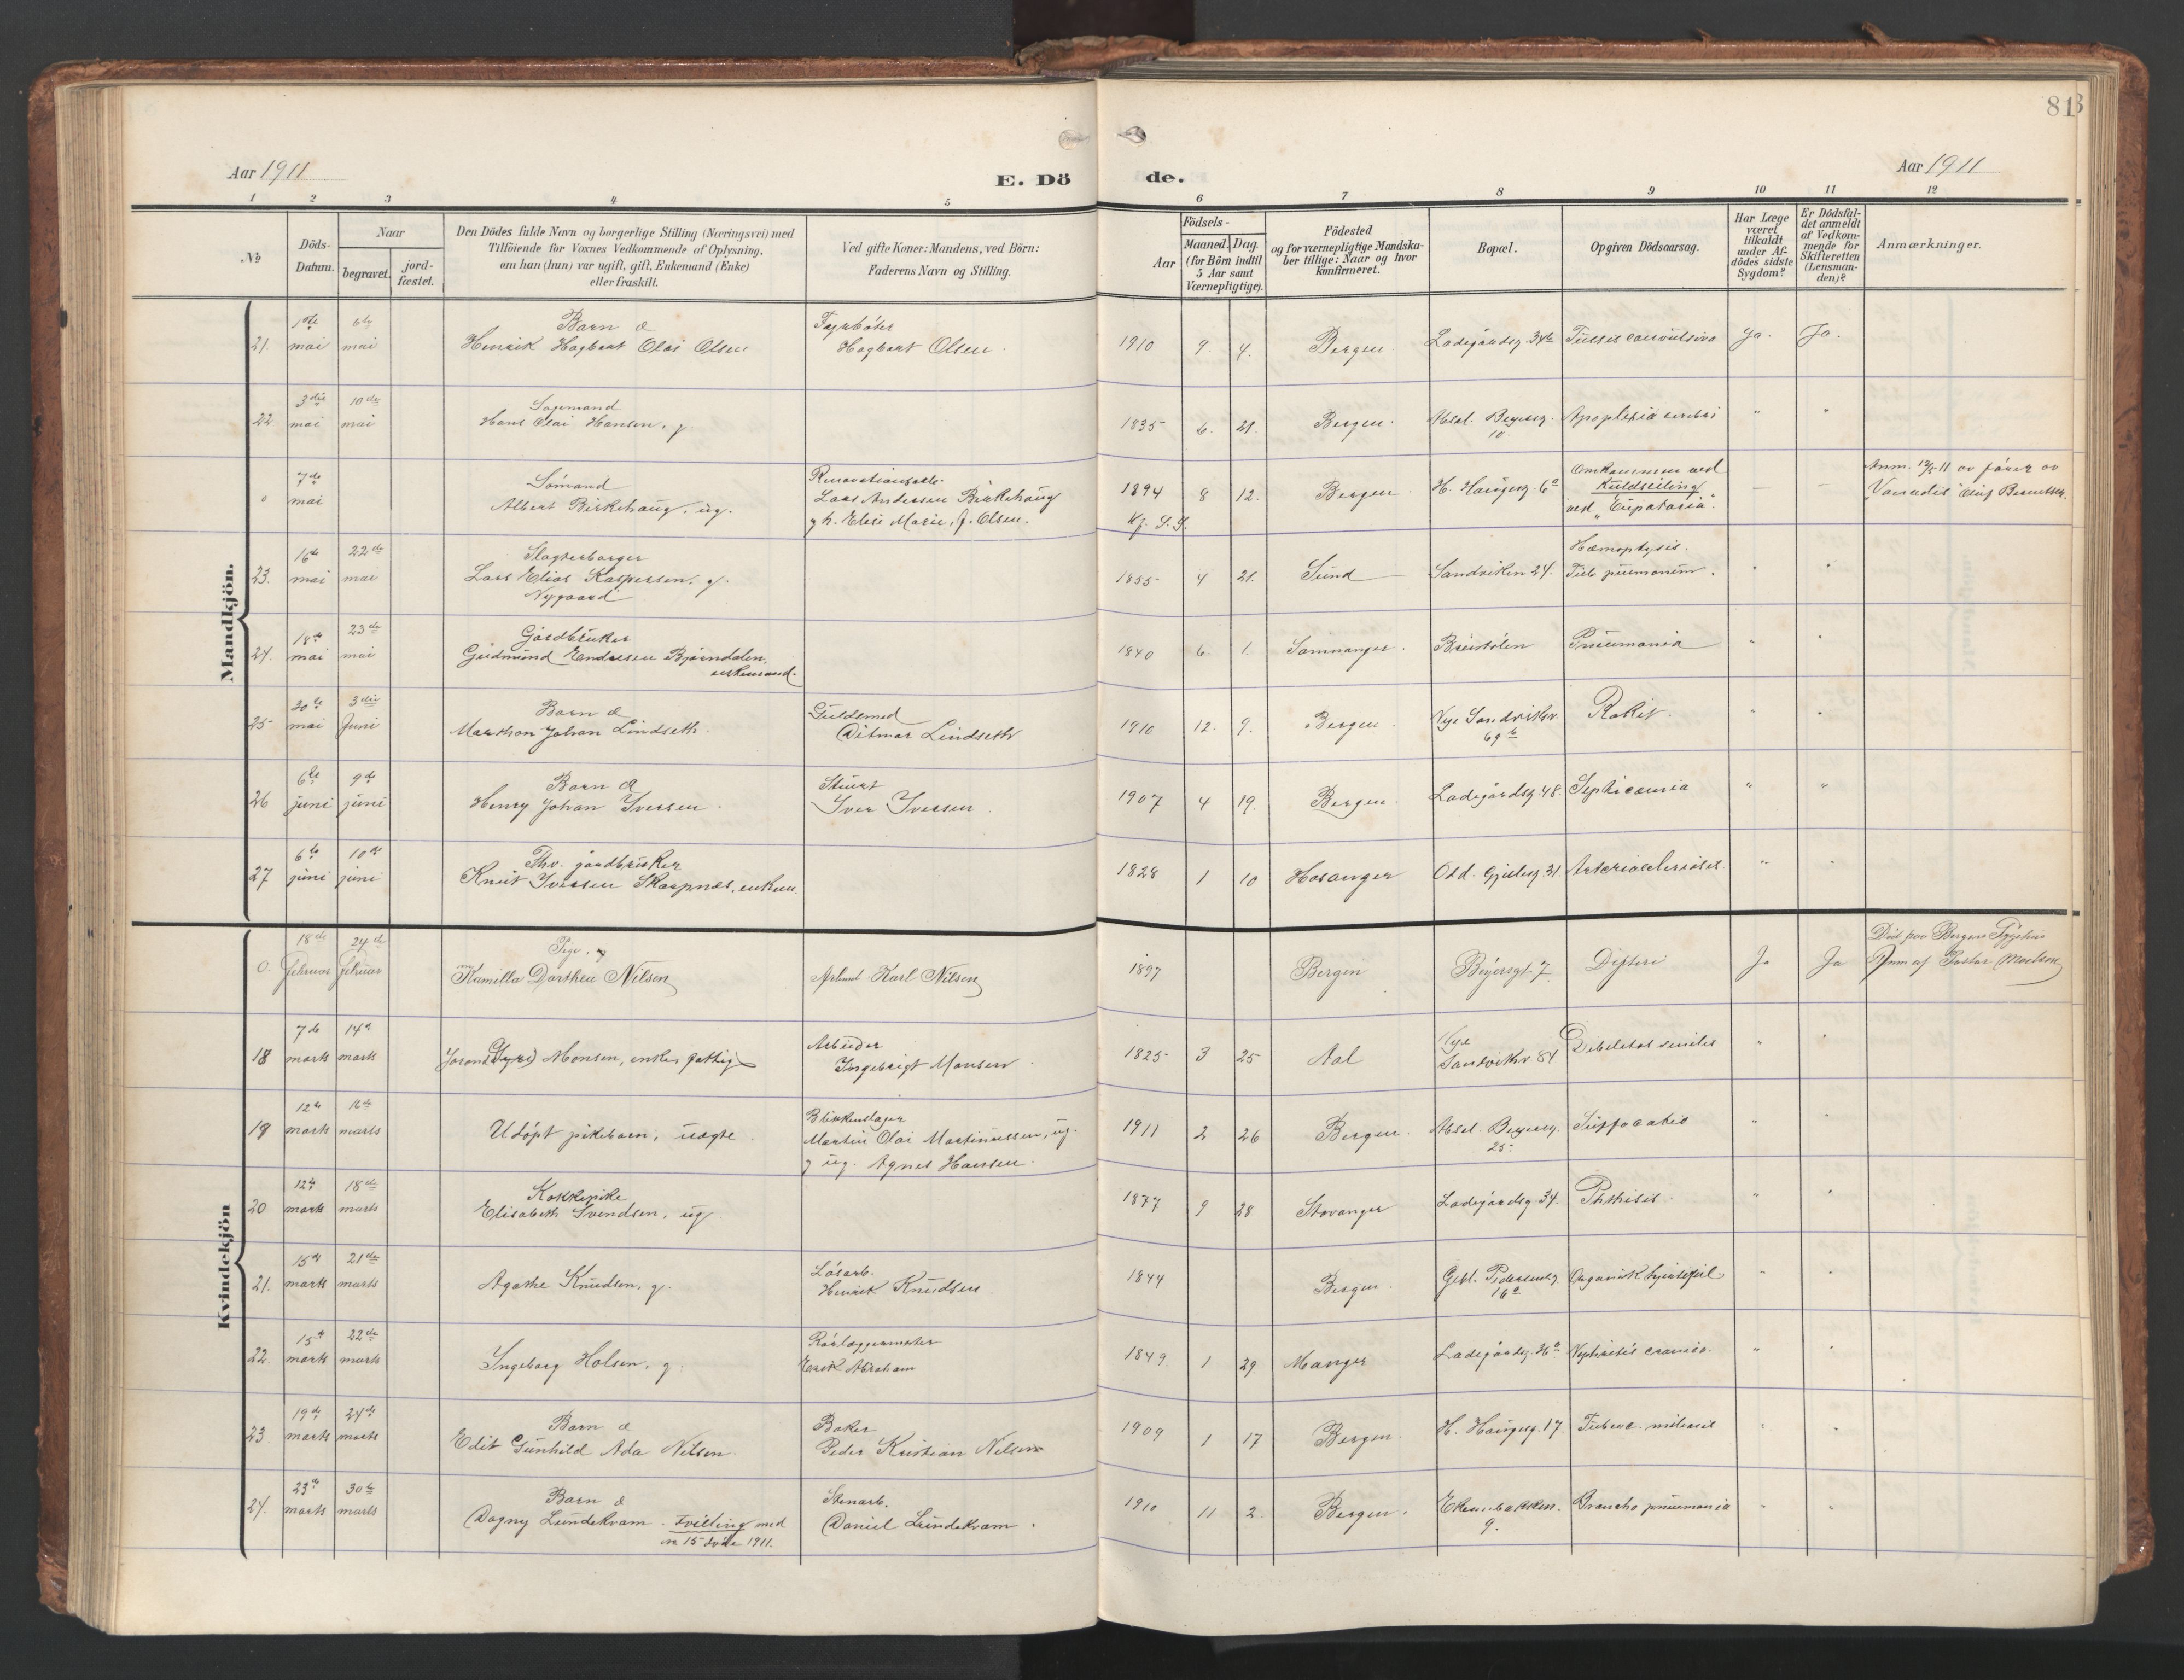 81
Aar 1911
E. Dö de.
Aar 1911
1 2 3 4 5 6 7 8 9 10 11 12
No
Döds-Datum.
Naar
begravet.
jord-fæstet.
Den Dödes fulde Navn og borgerlige Stilling (Næringsvei) med
Tilföiende for Voxnes Vedkommende af Oplysning,
om han (hun) var ugift, gift, Enkemand (Enke)
eller fraskilt.
Ved gifte Koner: Mandens, ved Börn:
Faderens Navn og Stilling.
Födsels-
Aar
Maaned. Dag.
(for Börn indtil
5 Aar samt
Værnepligtige).
Födested
og for værnepligtige Mandska-
ber tillige: Naar og hvor
konfirmeret.
Bopæl.
Opgiven Dödsaarsag.
Har Læge
været
tilkaldt
under Af-
dödes sidste
Sygdom?
Er Dödsfal-
det anmeldt
af Vedkom-
mende for
Skifteretten
(Lensman-
den)?
Anmærkninger.
Mandkjön.
21. 1ste mai 6te mai Barn d
Henrik Hagbart Olai Olsen
Fyrbøter
Hagbart Olsen.
1910 9. 4. Bergen Ladegårdsg. 34b Tussis convulsiva Ja. Ja.
22 3die mai 10de mai
Hans Olai Hansen, g
1835 6. 21. Bergen. Absal. Beyersg. 10. Apoplexia cerebri " "
0 7de mai Sømand
Albert Birkehaug, ug.
Renovationsarb.
Lars Andersen Birkehaug
g h. Elise Marie, f. Olsen.
1894 8 12. Bergen H. Haugesg. 6a
Omkommen ved
Kuldseiling
ved "Eupatoria".
— —
Anm. 12/5 11 av fører av
"Vanadis"
23. 16de mai 22de mai Slagterborger
Lars Elias Kaspersen, g.
Nygaard
1855 4 21. Sund Sandviken 24. Hæmoptysis.
Tub. pulmonum. " "
24. 18de mai 23de mai Gårdbruker
Gudmund Endresen Bjørndalen,
enkemand.
1840 6. 1. Samnanger. Pneumonia " "
25 20de mai 3die Juni Barn d
Marthon Johan Lindseth.
Guldsmed
Ditmar Lindseth
1910 12. 9. Bergen Nye Sandviksv. 69b Rakit. " "
26 6te juni 9de juni Barn d
Henry Johan Iversen.
Stuert
Iver Iversen
1907 4 19. Bergen Ladegårdsg 48. Septicæmia " "
27 6te juni 10de juni Fhv. gårdbruker
Knut Iversen Skarpnes, enkem.
1828 1 10 Hosanger Odd. Gjelesg. 31. Arteriosclerosis. " "
Kvindekjön
0. 18de Februar 24de Februar Pige, ug
Kamilla Dorthea Nilsen
Karl Nilsen
1897 Bergen Beyersgt 7 Difteri Ja Ja
Død paa Bergens Sygehus
Anm af Pastor
18 7de marts 14de marts
Monsen, enke, fattig
Arbeider
Ingebrigt Monsen
1825 3 25 Aal Nye Sandviksv 84 Debilitas senilis " "
19 12te marts 16de marts
Udøpt pikebarn, uægte.
Blikkenslager
Martin Olai Martinussen, ug.
g ug. Agnes Hansen.
1911 2 26 Bergen. Absal. Beyersg. 25. Suffocatio " "
20 12te marts 18de marts Kokkepike
Elisabeth Svendsen, ug.
1877 9 28 Stavanger Ladegårdsg. 34. Phthisis. " "
21. 15de marts 21de marts
Agathe Knudsen, g.
Løsarb.
Henrik Knudsen
1844 Bergen. Gebl. Pedersensg 16a Organisk hjertefeil " "
22. 15de marts 22de marts
Ingeborg Holsen, g.
Rørlæggermester
Erik Abraham
1849. 1 29 Manger Nephritis cronica. " "
23. 19de marts 24de marts Barn d
Edit Gunhild Ada Nilsen.
Baker
Peder Kristian Nilsen
1909 1 17 Bergen. H. Haugesg. 17. Tuberc. miliaris " "
24. 23de marts 30te marts Barn d
Dagny Lundekvam. Tvilling med
No 15 døde 1911.
Stenarb.
Daniel Lundekvam.
1910 11 2. Bergen. 9. Broncho pneumonia " "